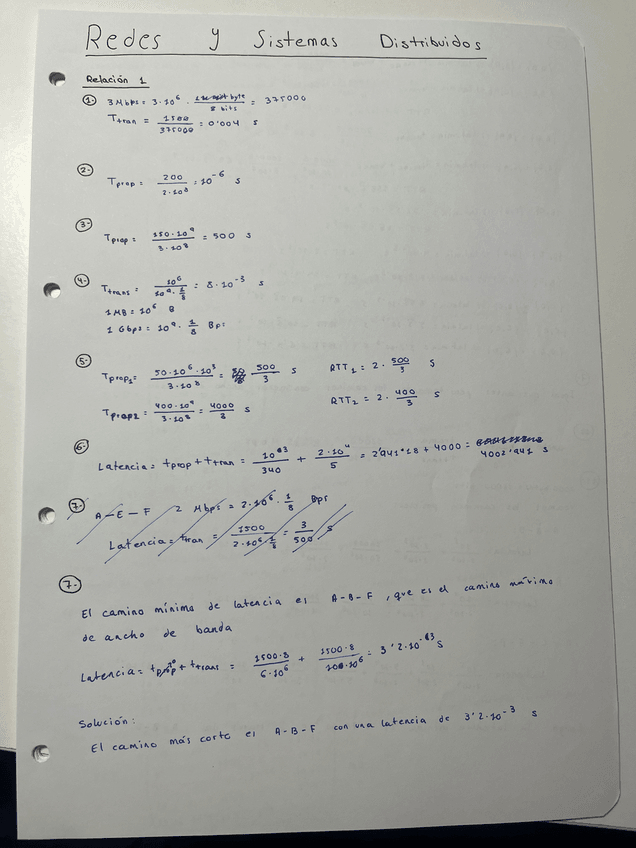 Redes y Sistemas Distribuidos
Relación 1
1. 3 Mbps = 3·10⁶ · byte / 8 bits = 375000
T tran = 1500 / 375000 = 0'004 s
2. T prop = 200 / 2·10⁸ = 10⁻⁶ s
3. T prop = 150·10⁹ / 3·10⁸ = 500 s
4. T trans = 10⁶ / 10⁹·1/8 = 8·10⁻³ s
1 MB = 10⁶ B
1 Gbps = 10⁹ · 1/8 Bps
5. T prop₁ = 50·10⁶·10³ / 3·10⁸ = 500/3 s RTT₁ = 2 · 500/3 s
T prop₂ = 400·10⁹ / 3·10⁸ = 4000/3 s RTT₂ = 2 · 400/3 s
6. Latencia = t prop + t tran = 10³ / 340 + 2·10⁴ / 5 = 2'941 + 4000 = 4002'941 s
7. A-E-F 2 Mbps = 2·10⁶ · 1/8 Bps
Latencia = t tran = 1500 / 2·10⁶·1/8 = 3/500 s
7.
El camino mínimo de latencia es A-B-F, que es el camino máximo
de ancho de banda
Latencia = t prop + t trans = 1500·8 / 6·10⁶ + 1500·8 / 10·10⁶ = 3'2·10⁻³ s
Solución:
El camino más corto es A-B-F con una latencia de 3'2·10⁻³ s